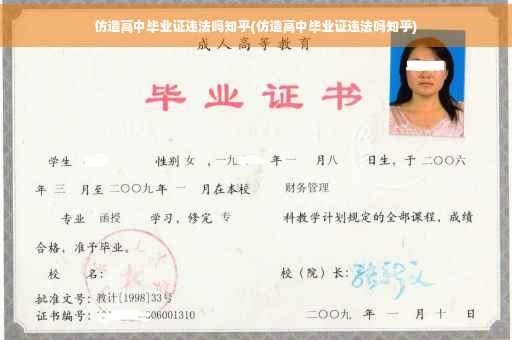 仿造高中毕业证违法吗知乎(仿造高中毕业证违法吗知乎)
成人高等教育
毕业证书
学生 性别 女 ，一九 年 一 月八 日生，于 二〇〇六
年 三 月至 二〇〇九 年 一 月在本校 财务管理
专业 函授 学习，修完 专 科教学计划规定的全部课程，成绩
合格，准予毕业。
校 名： 校（院）长：
批准文号：教计[1998]33号
证书编号： 06001310 二〇〇九 年 一 月 十 日